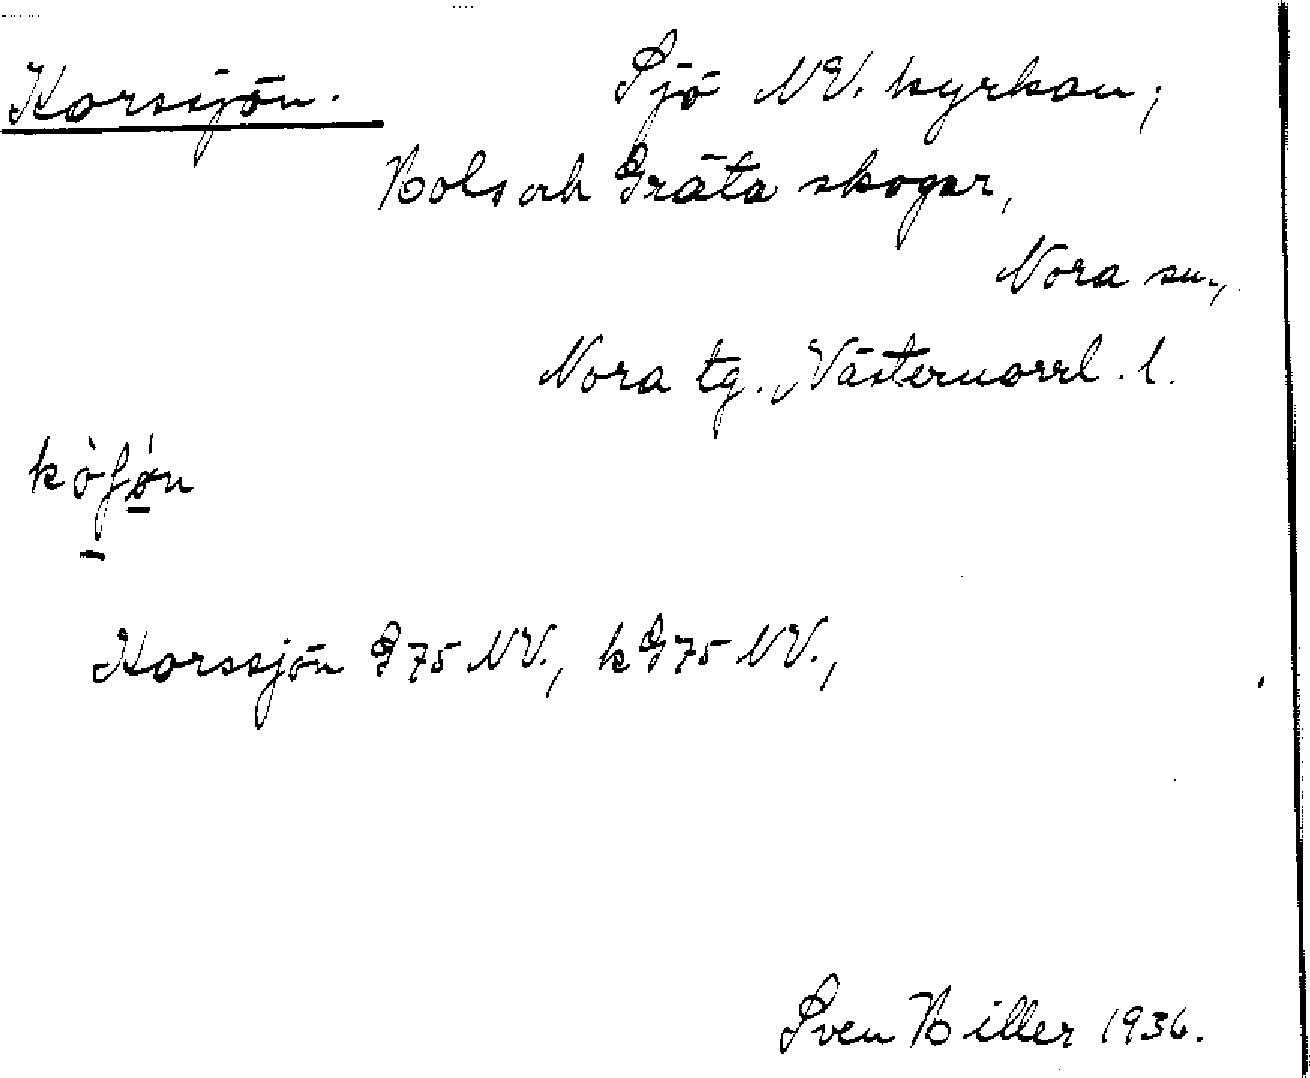 Korssjön. Sjö NV. kyrkan;
Hols och Gräta skogar,
Nora sn,
Nora tg., Västernorrl. l.
Korssjön G75 NV., kG75 NV.,
Sven Hiller 1936.